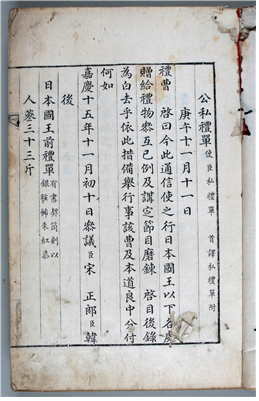 公私禮單 使臣私禮單 首譯私禮單 附
庚午十一月十一日
禮曹 啓曰今此通信使之行日本國王以下各處
贈給禮物參互已例及講定節目磨鍊 啓目後錄
爲白去乎依此措備擧行事該曹及本道良中分付
何如
嘉慶十五年十一月初十日叅議臣宋 正郎臣韓
後
日本國王前禮單 有書契筒則以
人蔘三十三斤